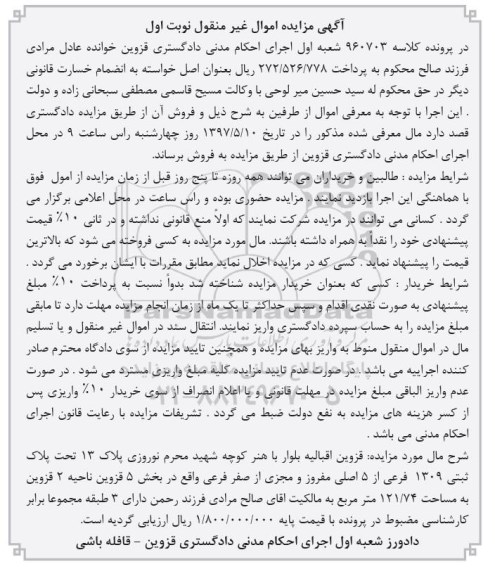 آگهی مزایده اموال غیر منقول نوبت اول
در پرونده کلاسه ۹۶۰۷۰۳ شعبه اول اجرای احکام مدنی دادگستری قزوین خوانده عادل مرادی
فرزند صالح محکوم به پرداخت ۲۷۲/۵۲۶/۷۷۸ ریال بعنوان اصل خواسته به انضمام خسارت قانونی
دیگر در حق محکوم له سید حسین میر لوحی با وکالت مسیح قاسمی مصطفی سبحانی زاده و دولت
. این اجرا با توجه به معرفی اموال از طرفین به شرح ذیل و فروش آن از طریق مزایده دادگستری
قصد دارد مال معرفی شده مذکور را در تاریخ ۱۳۹۷/۵/۱۰ روز چهارشنبه راس ساعت ۹ در محل
اجرای احکام مدنی دادگستری قزوین از طریق مزایده به فروش برساند.
شرایط مزایده : طالبین و خریداران می توانند همه روزه تا پنج روز قبل از زمان مزایده از امول فوق
با هماهنگی این اجرا بازدید نمایند . مزایده حضوری بوده و راس ساعت در محل اعلامی برگزار می
گردد . کسانی می توانند در مزایده شرکت نمایند که اولاً منع قانونی نداشته و در ثانی ۱۰٪ قیمت
پیشنهادی خود را نقداً به همراه داشته باشند. مال مورد مزایده به کسی فروخته می شود که بالاترین
قیمت را پیشنهاد نماید . کسی که در مزایده اخلال نماید مطابق مقررات با ایشان برخورد می گردد .
شرایط خریدار : کسی که بعنوان خریدار مزایده شناخته شد بدواً نسبت به پرداخت ۱۰٪ مبلغ
پیشنهادی به صورت نقدی اقدام و سپس حداکثر تا یک ماه از زمان انجام مزایده مهلت دارد تا مابقی
مبلغ مزایده را به حساب سپرده دادگستری واریز نمایند. انتقال سند در اموال غیر منقول و یا تسلیم
مال در اموال منقول منوط به واریز بهای مزایده و همچنین تایید مزایده از سوی دادگاه محترم صادر
کننده اجراییه می باشد . در صورت عدم تایید مزایده کلیه مبلغ واریزی مسترد می شود . در صورت
عدم واریز الباقی مبلغ مزایده در مهلت قانونی و یا اعلام انصراف از سوی خریدار ۱۰٪ واریزی پس
از کسر هزینه های مزایده به نفع دولت ضبط می گردد . تشریفات مزایده با رعایت قانون اجرای
احکام مدنی می باشد .
شرح مال مورد مزایده: قزوین اقبالیه بلوار با هنر کوچه شهید محرم نوروزی پلاک ۱۳ تحت پلاک
ثبتی ۱۳۰۹ فرعی از ۵ اصلی مفروز و مجزی از صفر فرعی واقع در بخش ۵ قزوین ناحیه ۲ قزوین
به مساحت ۱۲۱/۷۴ متر مربع به مالکیت اقای صالح مرادی فرزند رحمن دارای ۳ طبقه مجموعا برابر
کارشناسی مضبوط در پرونده با قیمت پایه ۱/۸۰۰/۰۰۰/۰۰۰ ریال ارزیابی گردیه است.
دادورز شعبه اول اجرای احکام مدنی دادگستری قزوین – قافله باشی